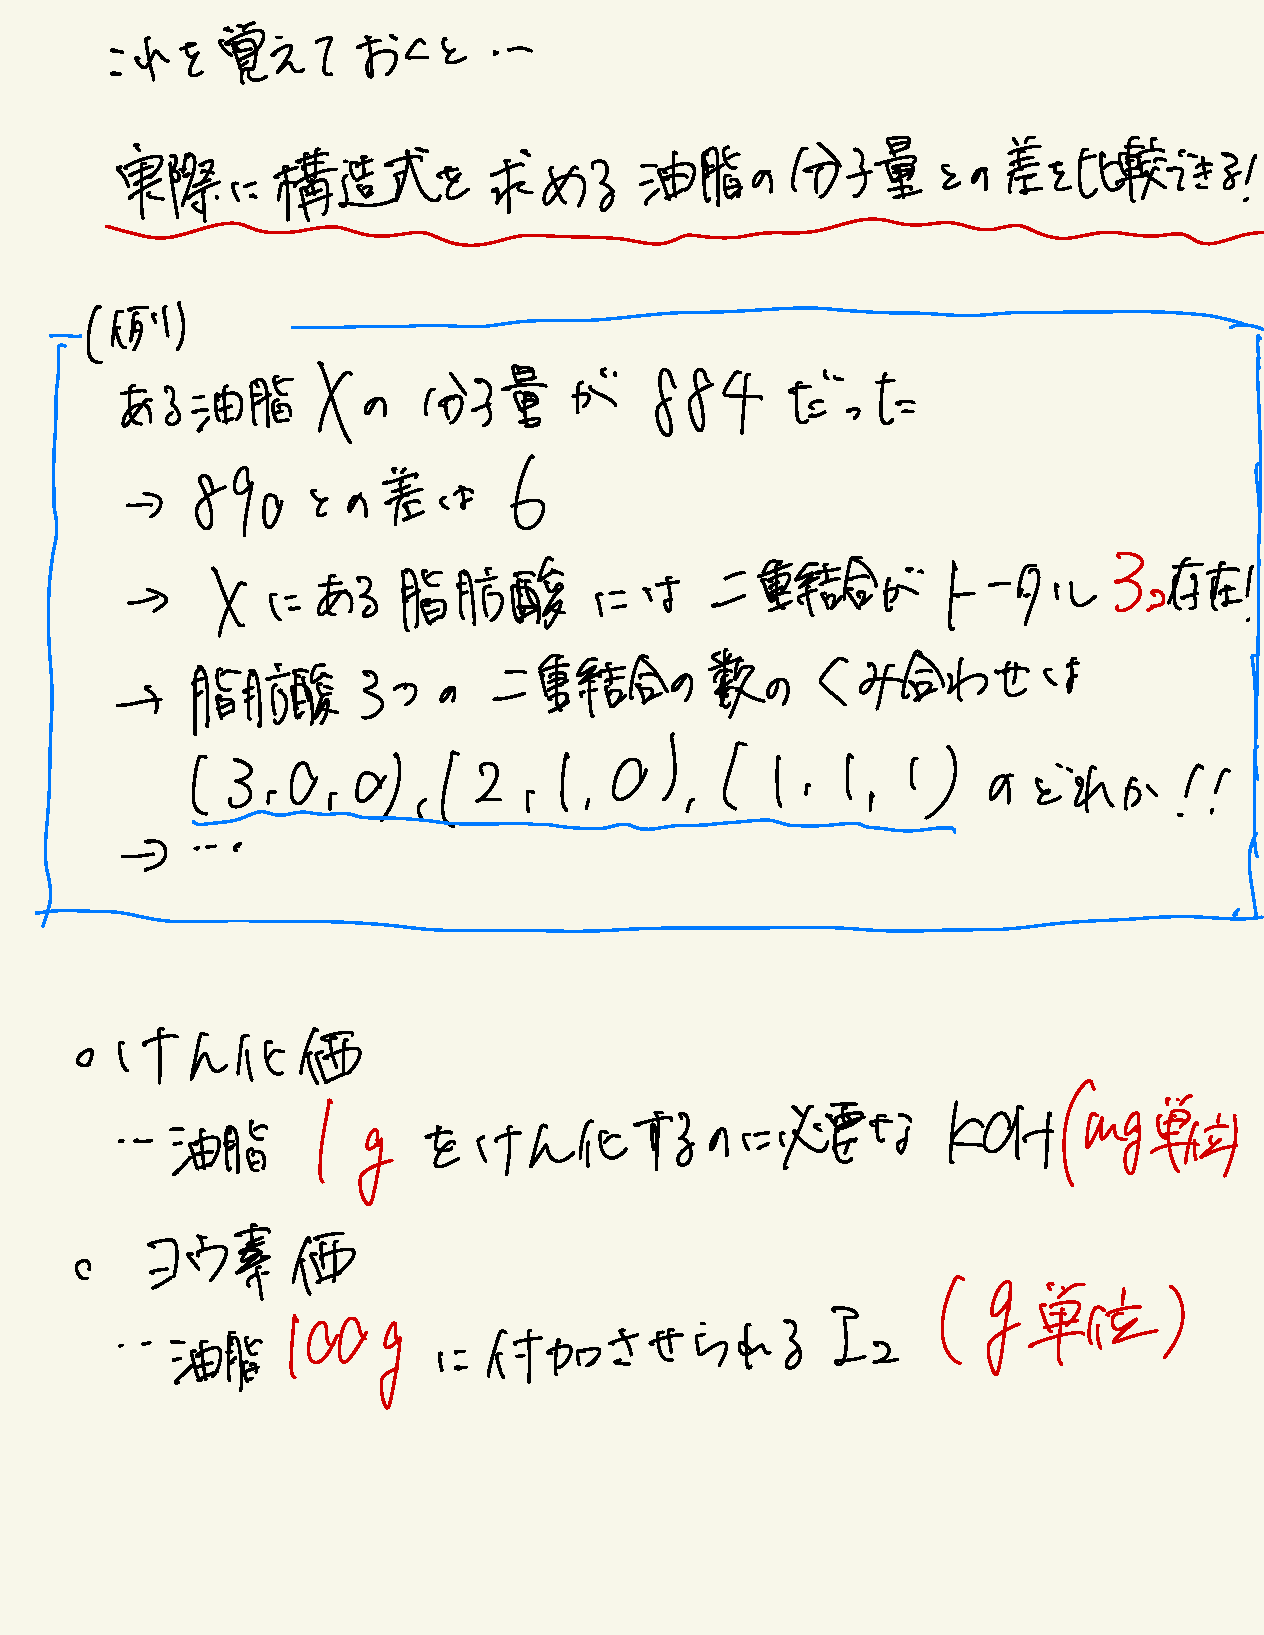 これを覚えておくと…
実際に構造式を求める油脂の分子量との差を比較できる!
(例)
ある油脂Xの分子量が884だった
→ 890との差は6
→ Xにある脂肪酸には二重結合がトータル3つ存在!
→ 脂肪酸3つの二重結合の数のくみ合わせは
(3,0,0),(2,1,0),(1,1,1)のどれか!!
→ …
○けん化価
…油脂1gをけん化するのに必要なKOH(mg単位)
○ヨウ素価
…油脂100gに付加させられるI₂(g単位)